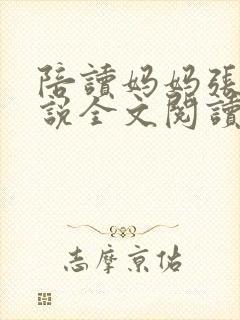 陪讀妈妈張
說全文閱讀
志摩京佑